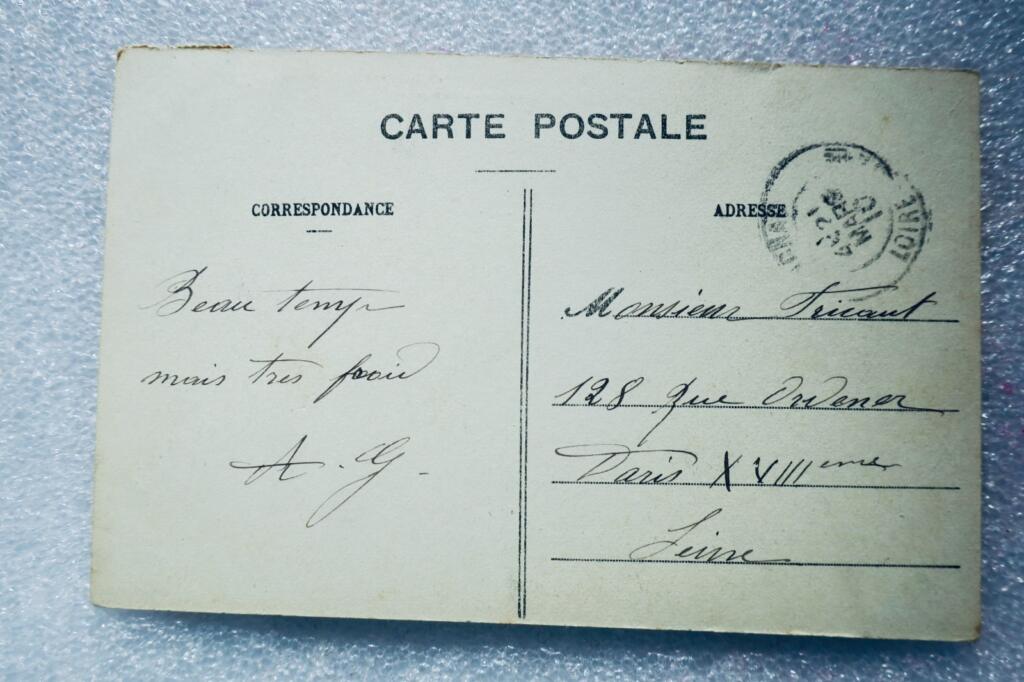 CARTE POSTALE
CORRESPONDANCE
ADRESSE
21
MARS
10
Beau temps
mais tres froid
A. G.
Monsieur Tricaut
128 Rue Ordener
Paris XVIIIeme
Seine